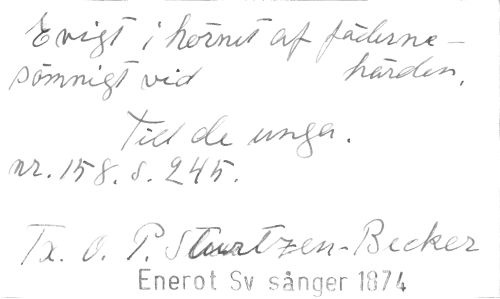 Evigt i hörnet af fäderne-
sömnigt vid härden.
Till de unga.
nr. 158. s. 245.
Tx. O. P. Sturtzen-Becker
Enerot Sv sånger 1874